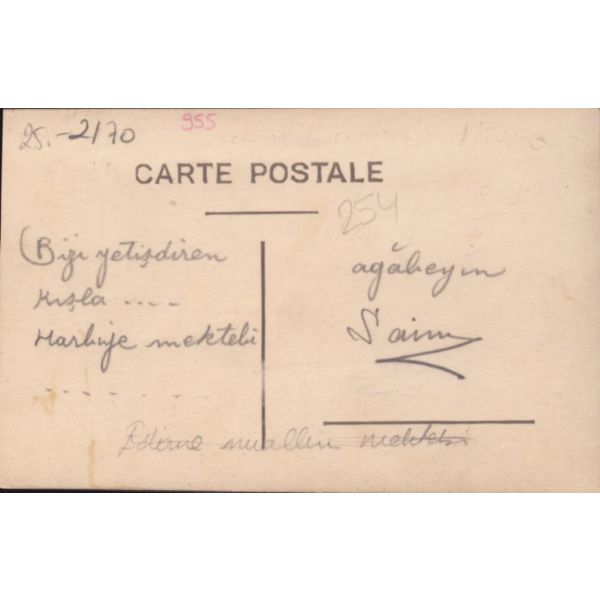 25.-2/70
955
CARTE POSTALE
254
Bizi yetişdiren
Kışla ....
Harbiye mektebi
.......
ağâbeyin
Saim
Edirne muallim mektebi